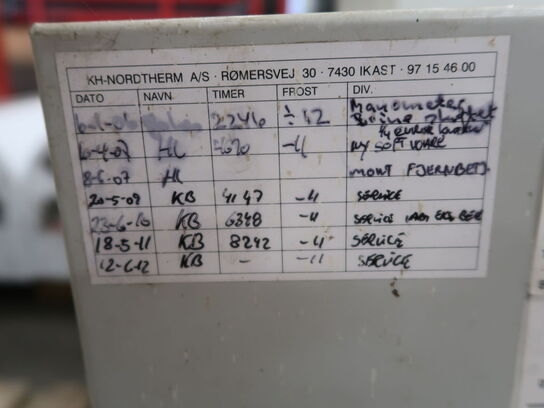 KH-NORDTHERM A/S · RØMERSVEJ 30 · 7430 IKAST · 97 15 46 00
DATO NAVN TIMER FROST DIV.
2246 ÷ 42 Manometer
HL -11 NY SOFTWARE
07 HL MONT FJERNBETJ
20-5-09 KB 4147 -11 SERVICE
23-6-10 KB 6348 -11 SERVICE
18-5-11 KB 8242 -11 SERVICE
12-6-12 KB - -11 SERVICE